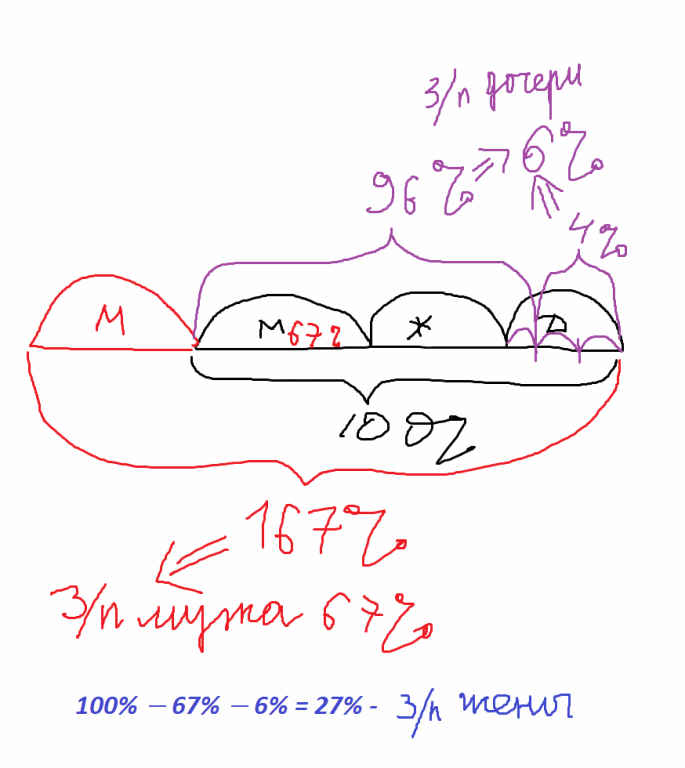 З/п дочери
96% ⇒ 6%
4%
М
М 67%
Ж
Д
100%
167%
З/п мужа 67%
100% – 67% – 6% = 27% - З/п жены